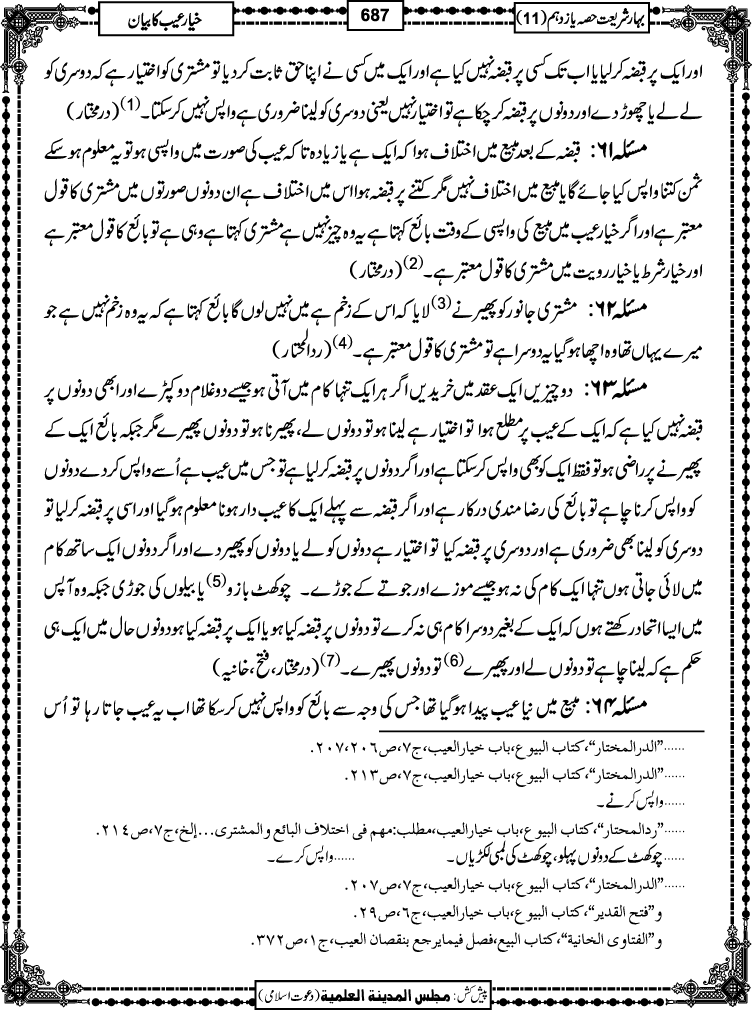 بہار شریعت حصہ یازدہم (11)
687
خیار عیب کا بیان
اور ایک پر قبضہ کرلیا یا اب تک کسی پر قبضہ نہیں کیا ہے اور ایک میں کسی نے اپنا حق ثابت کر دیا تو مشتری کو اختیار ہے کہ دوسری کو
لے لے یا چھوڑ دے اور دونوں پر قبضہ کر چکا ہے تو اختیار نہیں یعنی دوسری کو لینا ضروری ہے واپس نہیں کرسکتا۔(1) (درمختار)
مسئلہ ۶۱: قبضہ کے بعد مبیع میں اختلاف ہوا کہ ایک ہے یا زیادہ تاکہ عیب کی صورت میں واپسی ہو تو یہ معلوم ہوسکے
ثمن کتنا واپس کیا جائے گا یا مبیع میں اختلاف نہیں مگر کتنے پر قبضہ ہوا اس میں اختلاف ہے ان دونوں صورتوں میں مشتری کا قول
معتبر ہے اور اگر خیار عیب میں مبیع کی واپسی کے وقت بائع کہتا ہے یہ وہ چیز نہیں ہے مشتری کہتا ہے وہی ہے تو بائع کا قول معتبر ہے
اور خیار شرط یا خیار رویت میں مشتری کا قول معتبر ہے۔(2) (درمختار)
مسئلہ ۶۲: مشتری جانور کو پھیرنے(3) لایا کہ اس کے زخم ہے میں نہیں لوں گا بائع کہتا ہے کہ یہ وہ زخم نہیں ہے جو
میرے یہاں تھا وہ اچھا ہوگیا یہ دوسرا ہے تو مشتری کا قول معتبر ہے۔(4) (ردالمحتار)
مسئلہ ۶۳: دو چیزیں ایک عقد میں خریدیں اگر ہر ایک تنہا کام میں آتی ہو جیسے دو غلام دو کپڑے اور ابھی دونوں پر
قبضہ نہیں کیا ہے کہ ایک کے عیب پر مطلع ہوا تو اختیار ہے لینا ہو تو دونوں لے، پھیرنا ہو تو دونوں پھیرے مگر جبکہ بائع ایک کے
پھیرنے پر راضی ہو تو فقط ایک کو بھی واپس کرسکتا ہے اور اگر دونوں پر قبضہ کرلیا ہے تو جس میں عیب ہے اُسے واپس کردے دونوں
کو واپس کرنا چاہے تو بائع کی رضا مندی درکار ہے اور اگر قبضہ سے پہلے ایک کا عیب دار ہونا معلوم ہوگیا اور اسی پر قبضہ کرلیا تو
دوسری کو لینا بھی ضروری ہے اور دوسری پر قبضہ کیا تو اختیار ہے دونوں کو لے یا دونوں کو پھیر دے اور اگر دونوں ایک ساتھ کام
میں لائی جاتی ہوں تنہا ایک کام کی نہ ہو جیسے موزے اور جوتے کے جوڑے۔ چوکھٹ بازو(5) یا بیلوں کی جوڑی جبکہ وہ آپس
میں ایسا اتحاد رکھتے ہوں کہ ایک کے بغیر دوسرا کام ہی نہ کرے تو دونوں پر قبضہ کیا ہو یا ایک پر قبضہ کیا ہو دونوں حال میں ایک ہی
حکم ہے کہ لینا چاہے تو دونوں لے اور پھیرے(6) تو دونوں پھیرے۔(7) (درمختار، فتح، خانیہ)
مسئلہ ۶۴: مبیع میں نیا عیب پیدا ہوگیا تھا جس کی وجہ سے بائع کو واپس نہیں کرسکتا تھا اب یہ عیب جاتا رہا تو اُس
......”الدرالمختار“، کتاب البیوع، باب خیارالعیب، ج۷، ص۲۰۶،۲۰۷.
......”الدرالمختار“، کتاب البیوع، باب خیارالعیب، ج۷، ص۲۱۳.
......واپس کرنے۔
......”ردالمحتار“، کتاب البیوع، باب خیارالعیب، مطلب: مهم فی اختلاف البائع والمشتری...إلخ، ج۷، ص۲۱٤.
......چوکھٹ کے دونوں پہلو، چوکھٹ کی لمبی لکڑیاں۔ ......واپس کرے۔
......”الدرالمختار“، کتاب البیوع، باب خیارالعیب، ج۷، ص۲۰۷.
و”فتح القدیر“، کتاب البیوع، باب خیارالعیب، ج٦، ص۲۹.
و”الفتاوی الخانیة“، کتاب البیع، فصل فیمایرجع بنقصان العیب، ج۱، ص۳۷۲.
پیش کش: مجلس المدینة العلمیة (دعوت اسلامی)